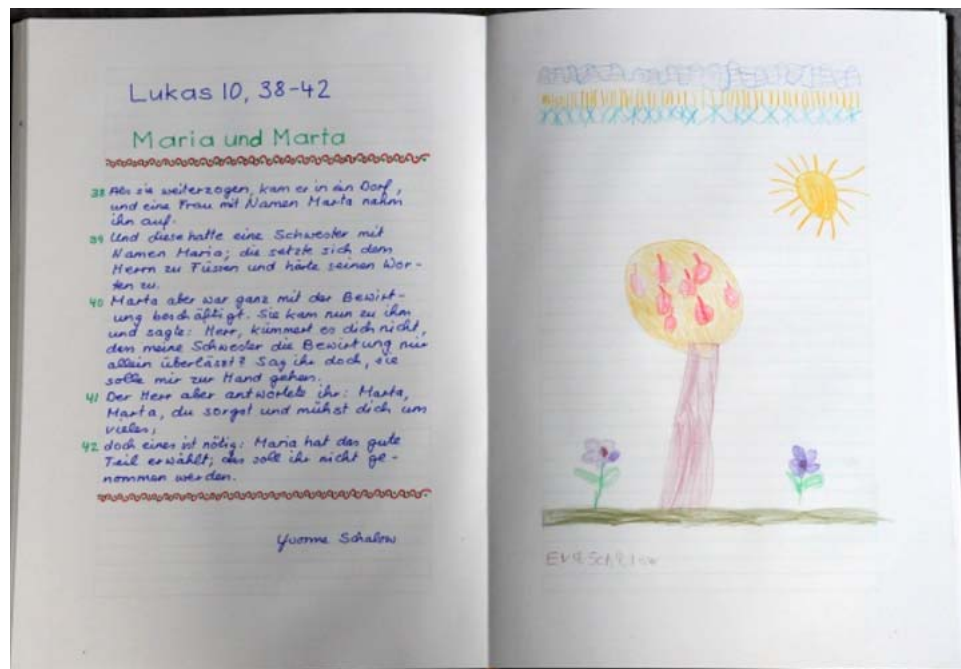 Lukas 10, 38-42
Maria und Marta
38 Als sie weiterzogen, kam er in ein Dorf,
und eine Frau mit Namen Marta nahm
ihn auf.
39 Und diese hatte eine Schwester mit
Namen Maria; die setzte sich dem
Herrn zu Füssen und hörte seinen Wor-
ten zu.
40 Marta aber war ganz mit der Bewirt-
ung beschäftigt. Sie kam nun zu ihm
und sagte: Herr, kümmert es dich nicht,
dass meine Schwester die Bewirtung mir
allein überlässt? Sag ihr doch, sie
solle mir zur Hand gehen.
41 Der Herr aber antwortete ihr: Marta,
Marta, du sorgst und mühst dich um
vieles;
42 doch eines ist nötig: Maria hat das gute
Teil erwählt; das soll ihr nicht ge-
nommen werden.
Yvonne Schalow